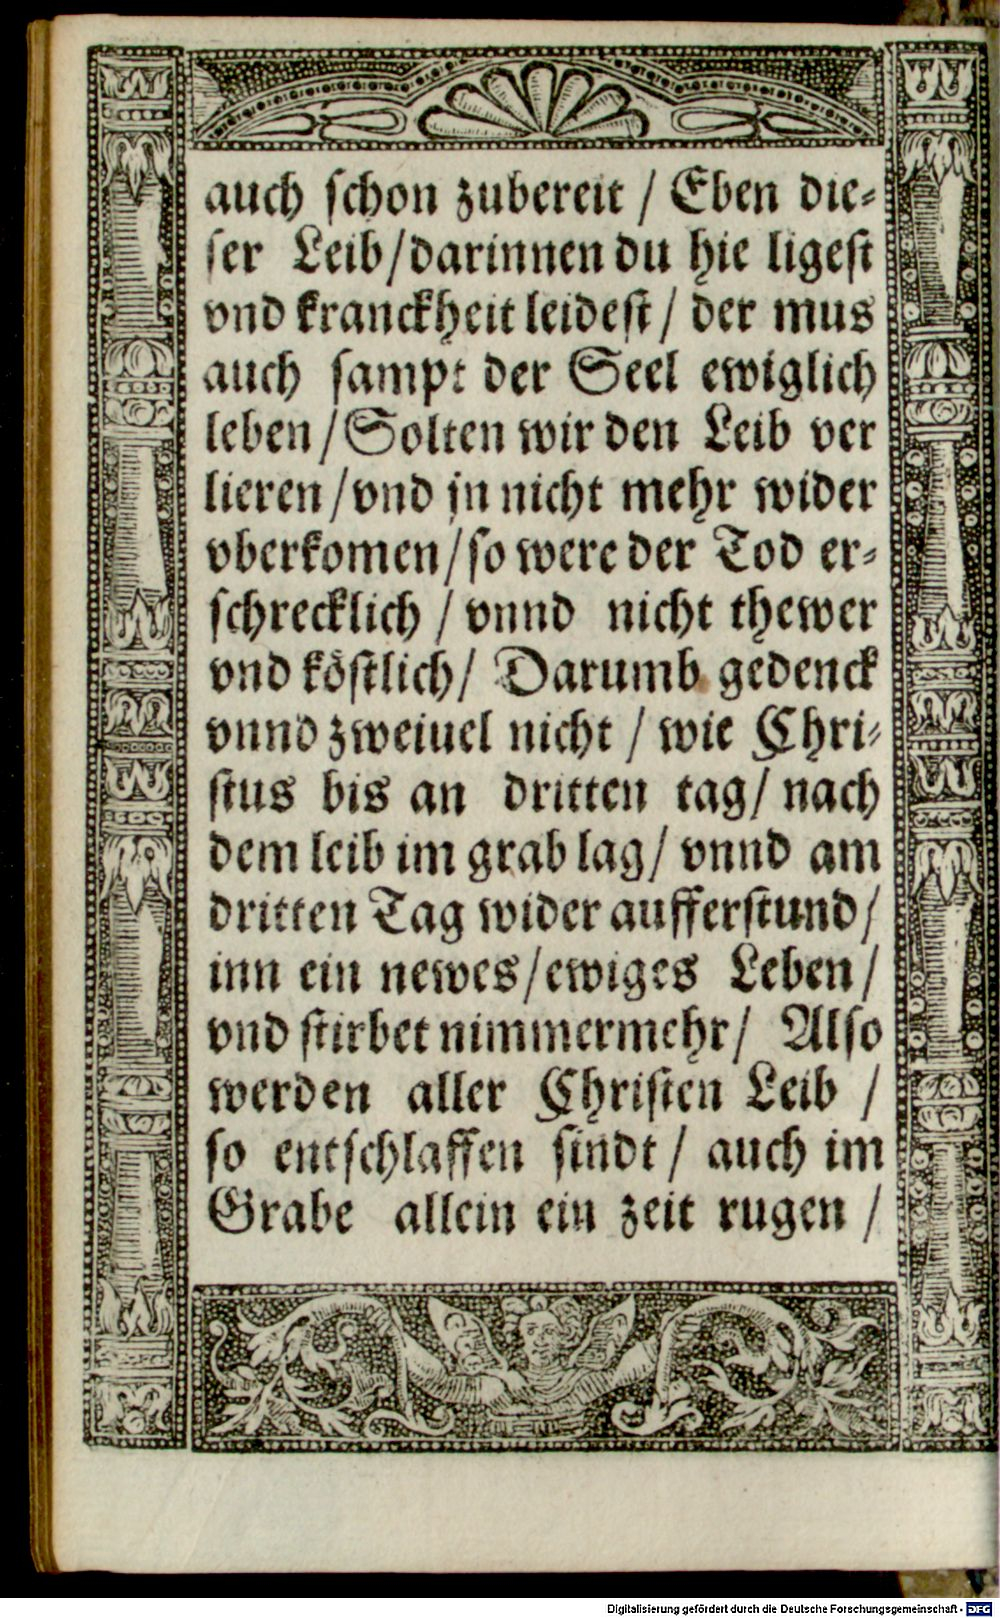 auch schon zubereit / Eben die⸗
ser Leib/darinnen du hie ligest
vnd kranckheit leidest/ der mus
auch sampt der Seel ewiglich
leben/Solten wir den Leib ver
lieren/vnd jn nicht mehr wider
vberkomen/so were der Tod er⸗
schrecklich / vnnd nicht thewer
vnd köstlich/ Darumb gedenck
vnnd zweiuel nicht / wie Chri⸗
stus bis an dritten tag/ nach
dem leib im grab lag/ vnnd am
dritten Tag wider aufferstund/
inn ein newes/ewiges Leben/
vnd stirbet nimmermehr/ Also
werden aller Christen Leib /
so entschlaffen sindt/ auch im
Grabe allein ein zeit rugen /
Digitalisierung gefördert durch die Deutsche Forschungsgemeinschaft - DFG